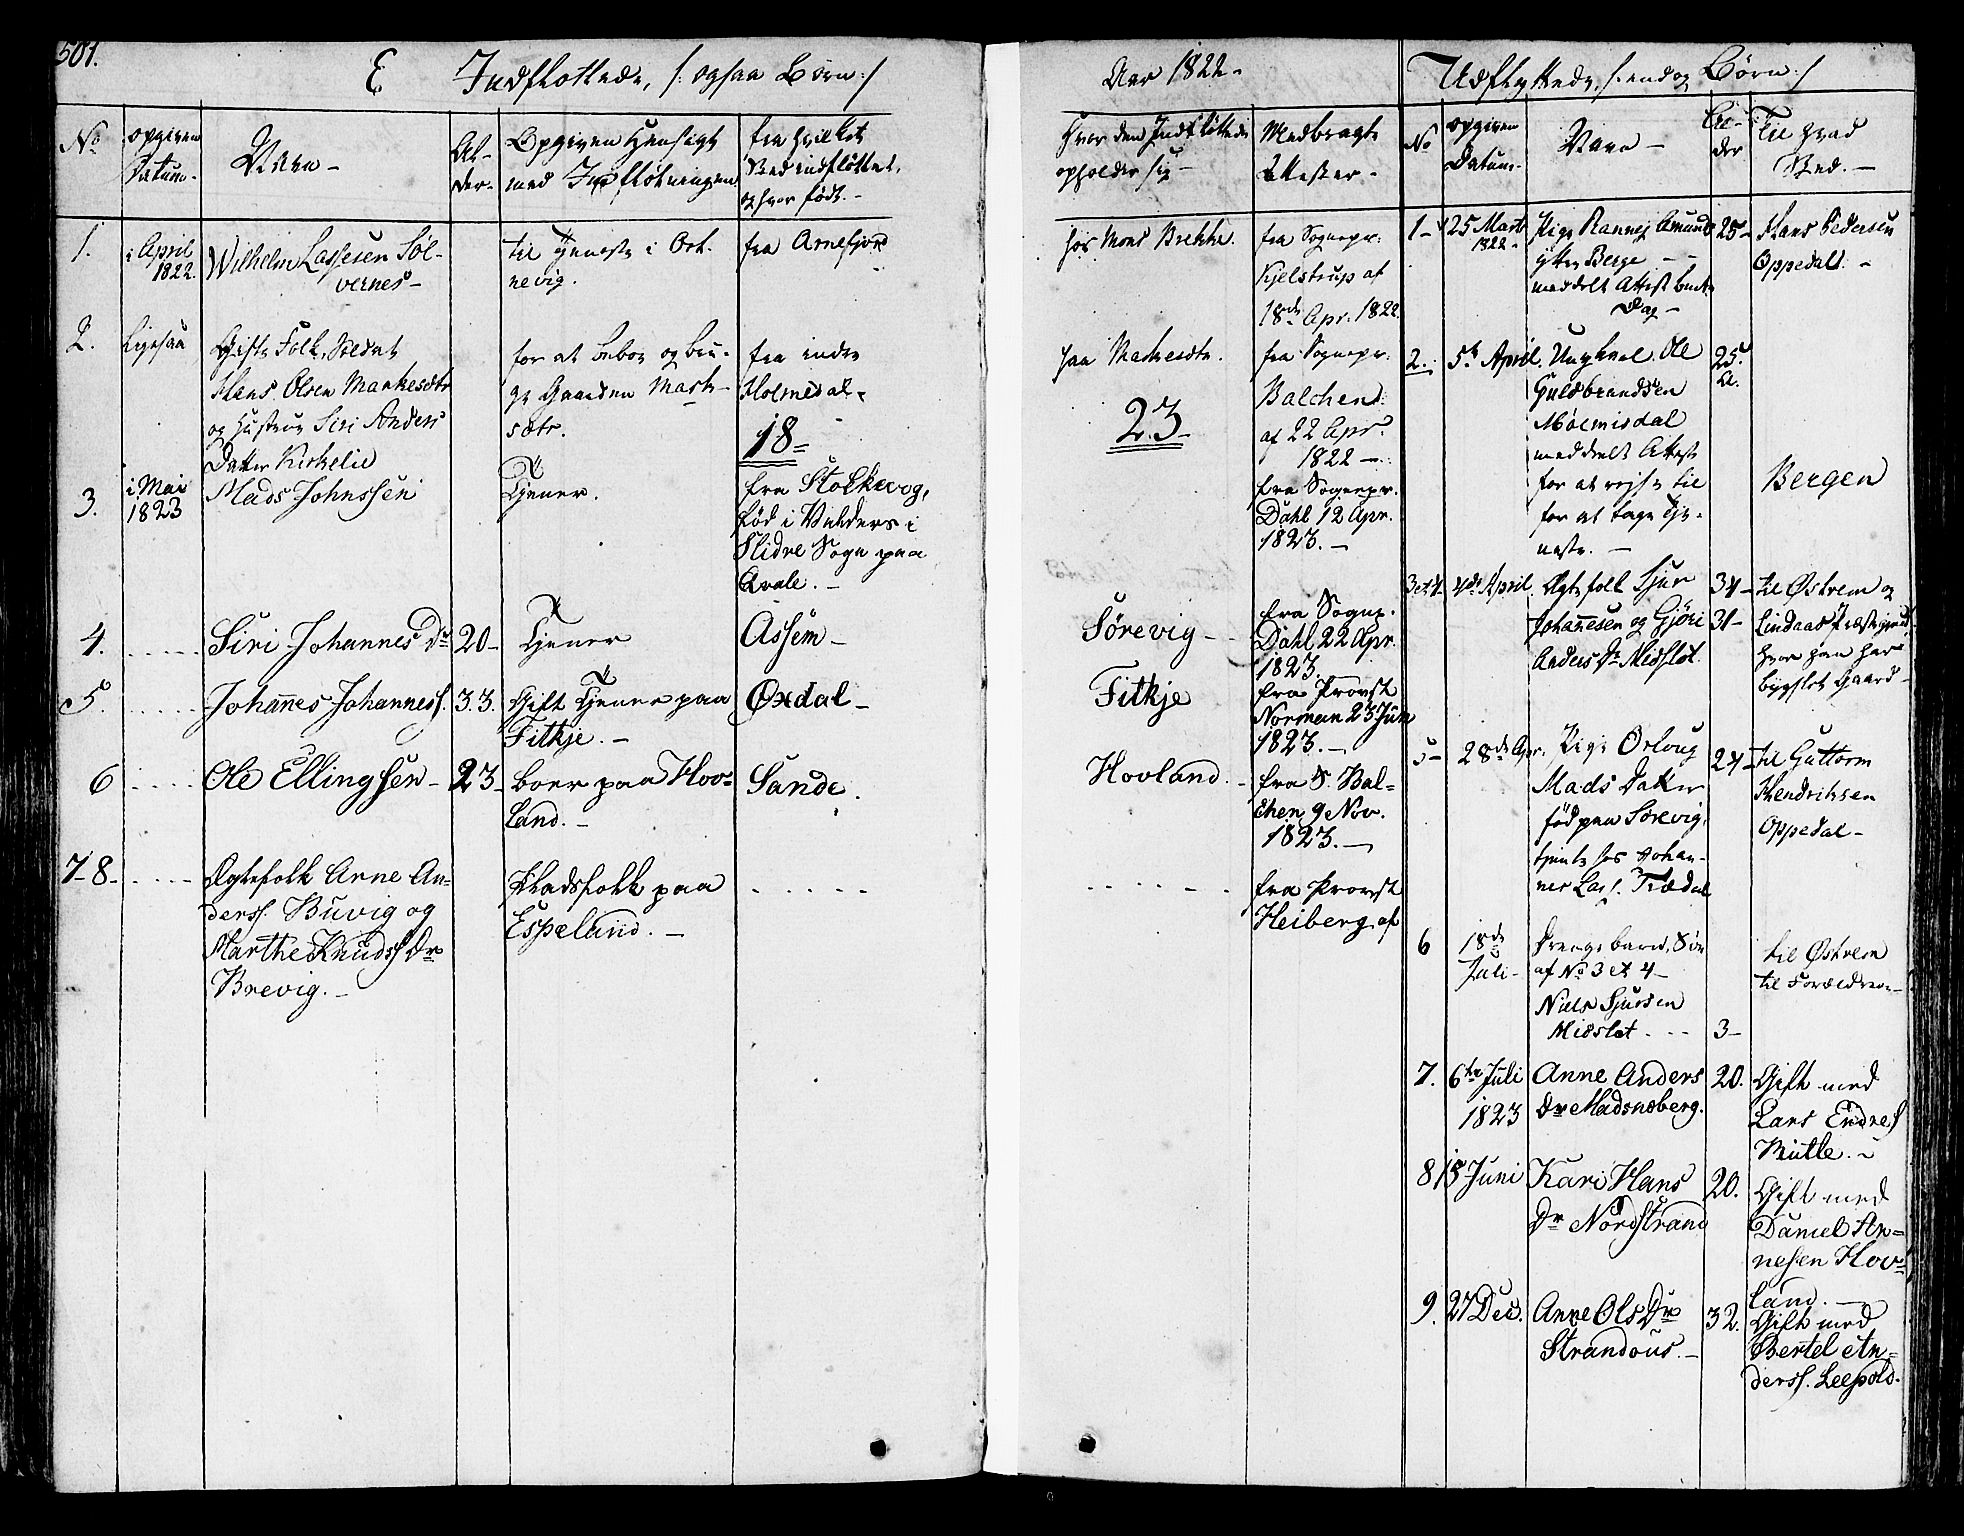 501.
E Indflöttede, /: ogsaa Börn :/
Aar 1822 -
Udflyttede, /: endog Børn :/
No
opgiven
Datum -
Navn -
Al-
der -
Opgiven Hensigt
med Indflötningen
fra hvilket
Sted indflöttet,
og hvor födt. -
Hvor den Indflöttede
opholder sig -
Medbragte
Attester -
1.
i April
1822.
Wilhelm Lassesen Söl-
vernes -
til Tjeneste i Ort-
nevig.
fra Arnefjord
hos Mons Brekke.
fra Sognepr.
Kjelstrup af
18de Apr. 1822.
2.
Ligesaa
Gifte Folk, Soldat
Hans Olsen Maskesætr
og Hustrue Siri Anders
Datter Kirkelie
for at beboe og bru-
ge Gaarden Maske-
sætr.
fra indre
Holmedal.
18 -
paa Maskesætr.
23 -
fra Sognepr.
Balchen
af 22 Apr.
1822 -
3.
i Mai
1823
Mads Johnssen
Tjener.
fra Stölkevog,
föd i Valders i
Slidre Sogn paa
Qvale. -
fra Sognepr.
Dahl 12 Apr.
1823. -
4.
Siri Johannes Dr
20 -
Tjener
Assem -
Sörevig -
fra Sognep.
Dahl 22 Apr.
1823.
5.
Johannes Johanness.
33.
Gift Tjener paa
Fitkje. -
Oxdal -
Fitkje
fra Provst
Norman 23 Jun
1823. -
6
Ole Ellingsen -
23 -
boer paa Hov-
land. -
Sande.
Hovland. -
fra S. Bal-
chen 9 Nov.
1823. -
7-8-
Ægtefolk Arne An-
derss. Buvig og
Marthe Knuds Dr
Brevig. -
Pladsfolk paa
Espeland. -
fra Provst
Heiberg af
No
opgiven
Datum -
Navn -
Al-
der
Til hvad
Sted. -
1 -
25 Marts
1822 -
Pige Rannej Amunds
ytter Berge -
meddelt Attest
Dag -
25 -
Hans Pedersen
Oppedal. -
2.
5te April.
Ungkarl Ole
Guldbrandsen
Möemisdal
meddeelt Attest
for at rejse til
for at tage Tje-
neste. -
25
Bergen
3 et 4 -
4de April
Ægtefolk Sjur
Johannesen og Gjöri
Anders Dr Midslöt.
34 -
31 -
til Østrem og
Lindaas Præstegjeld,
hvor han har
bygslet Gaard -
5 -
28de Apr.
Pige Orloug
Mads Datter
föd paa Sörevig,
tjente hos Johan-
nes Lass. Trædal
24 -
til Guttorm
Hendriksen
Oppedal -
6
18de
Juli -
Drengebarn, Sön
af No 3 et 4 -
Niels Sjursen
Midslöt - - -
3 -
til Østrem
til Forældrene -
7.
6te Juli
1823
Anne Anders
Dr Madsneberg.
20.
Gift med
Lars Endres.
Bütle. -
8
15 Juni
Kari Hans
Dr Nordstrand
20.
Gift med
Daniel Ar-
nesen Hov-
land. -
9.
27 Dec.
Anne Ols Dr
Strandous. -
32.
Gift med
Bertel An-
derss. Leepold.